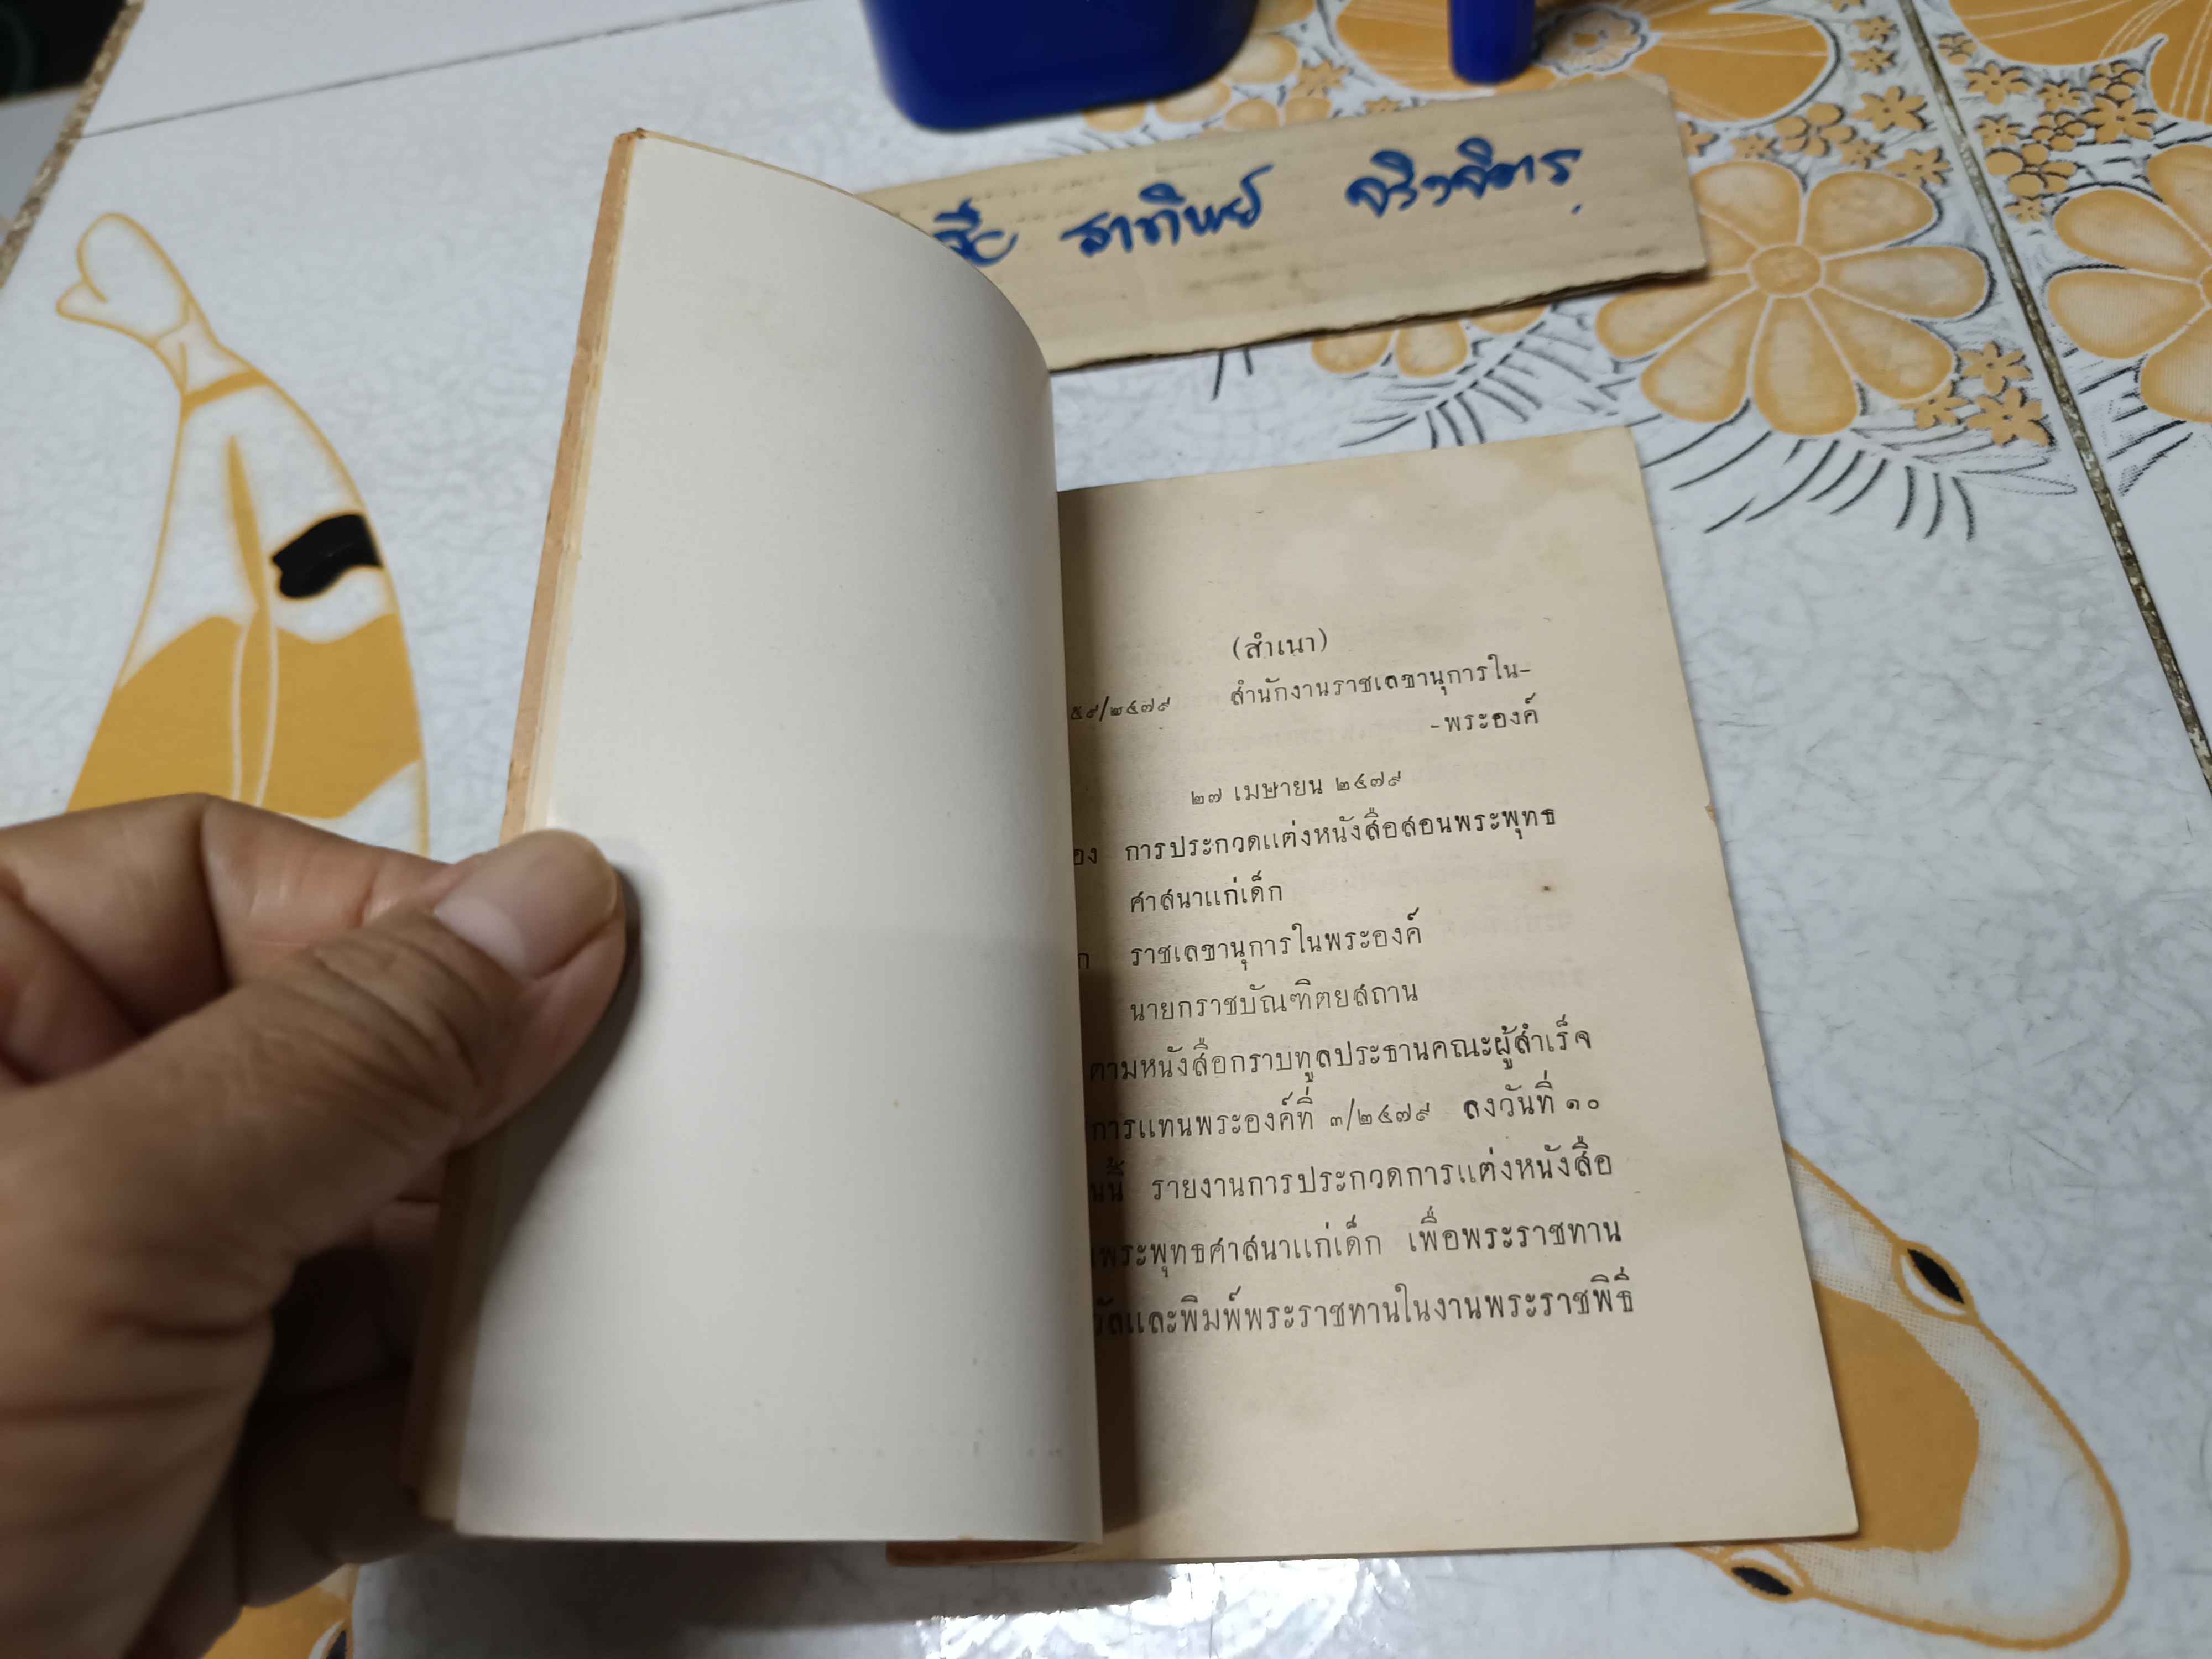 สาทิพย์
(สำเนา)
๕๙/๒๔๗๙ สำนักงานราชเลขานุการใน-
-พระองค์
๒๗ เมษายน ๒๔๗๙
การประกวดแต่งหนังสือสอนพระพุทธ
ศาสนาแก่เด็ก
ราชเลขานุการในพระองค์
นายกราชบัณฑิตยสถาน
ตามหนังสือกราบทูลประธานคณะผู้สำเร็จ
การแทนพระองค์ที่ ๓/๒๔๗๙ ลงวันที่ ๑๐
นนี้ รายงานการประกวดการแต่งหนังสือ
พระพุทธศาสนาแก่เด็ก เพื่อพระราชทาน
วัลและพิมพ์พระราชทานในงานพระราชพิธี